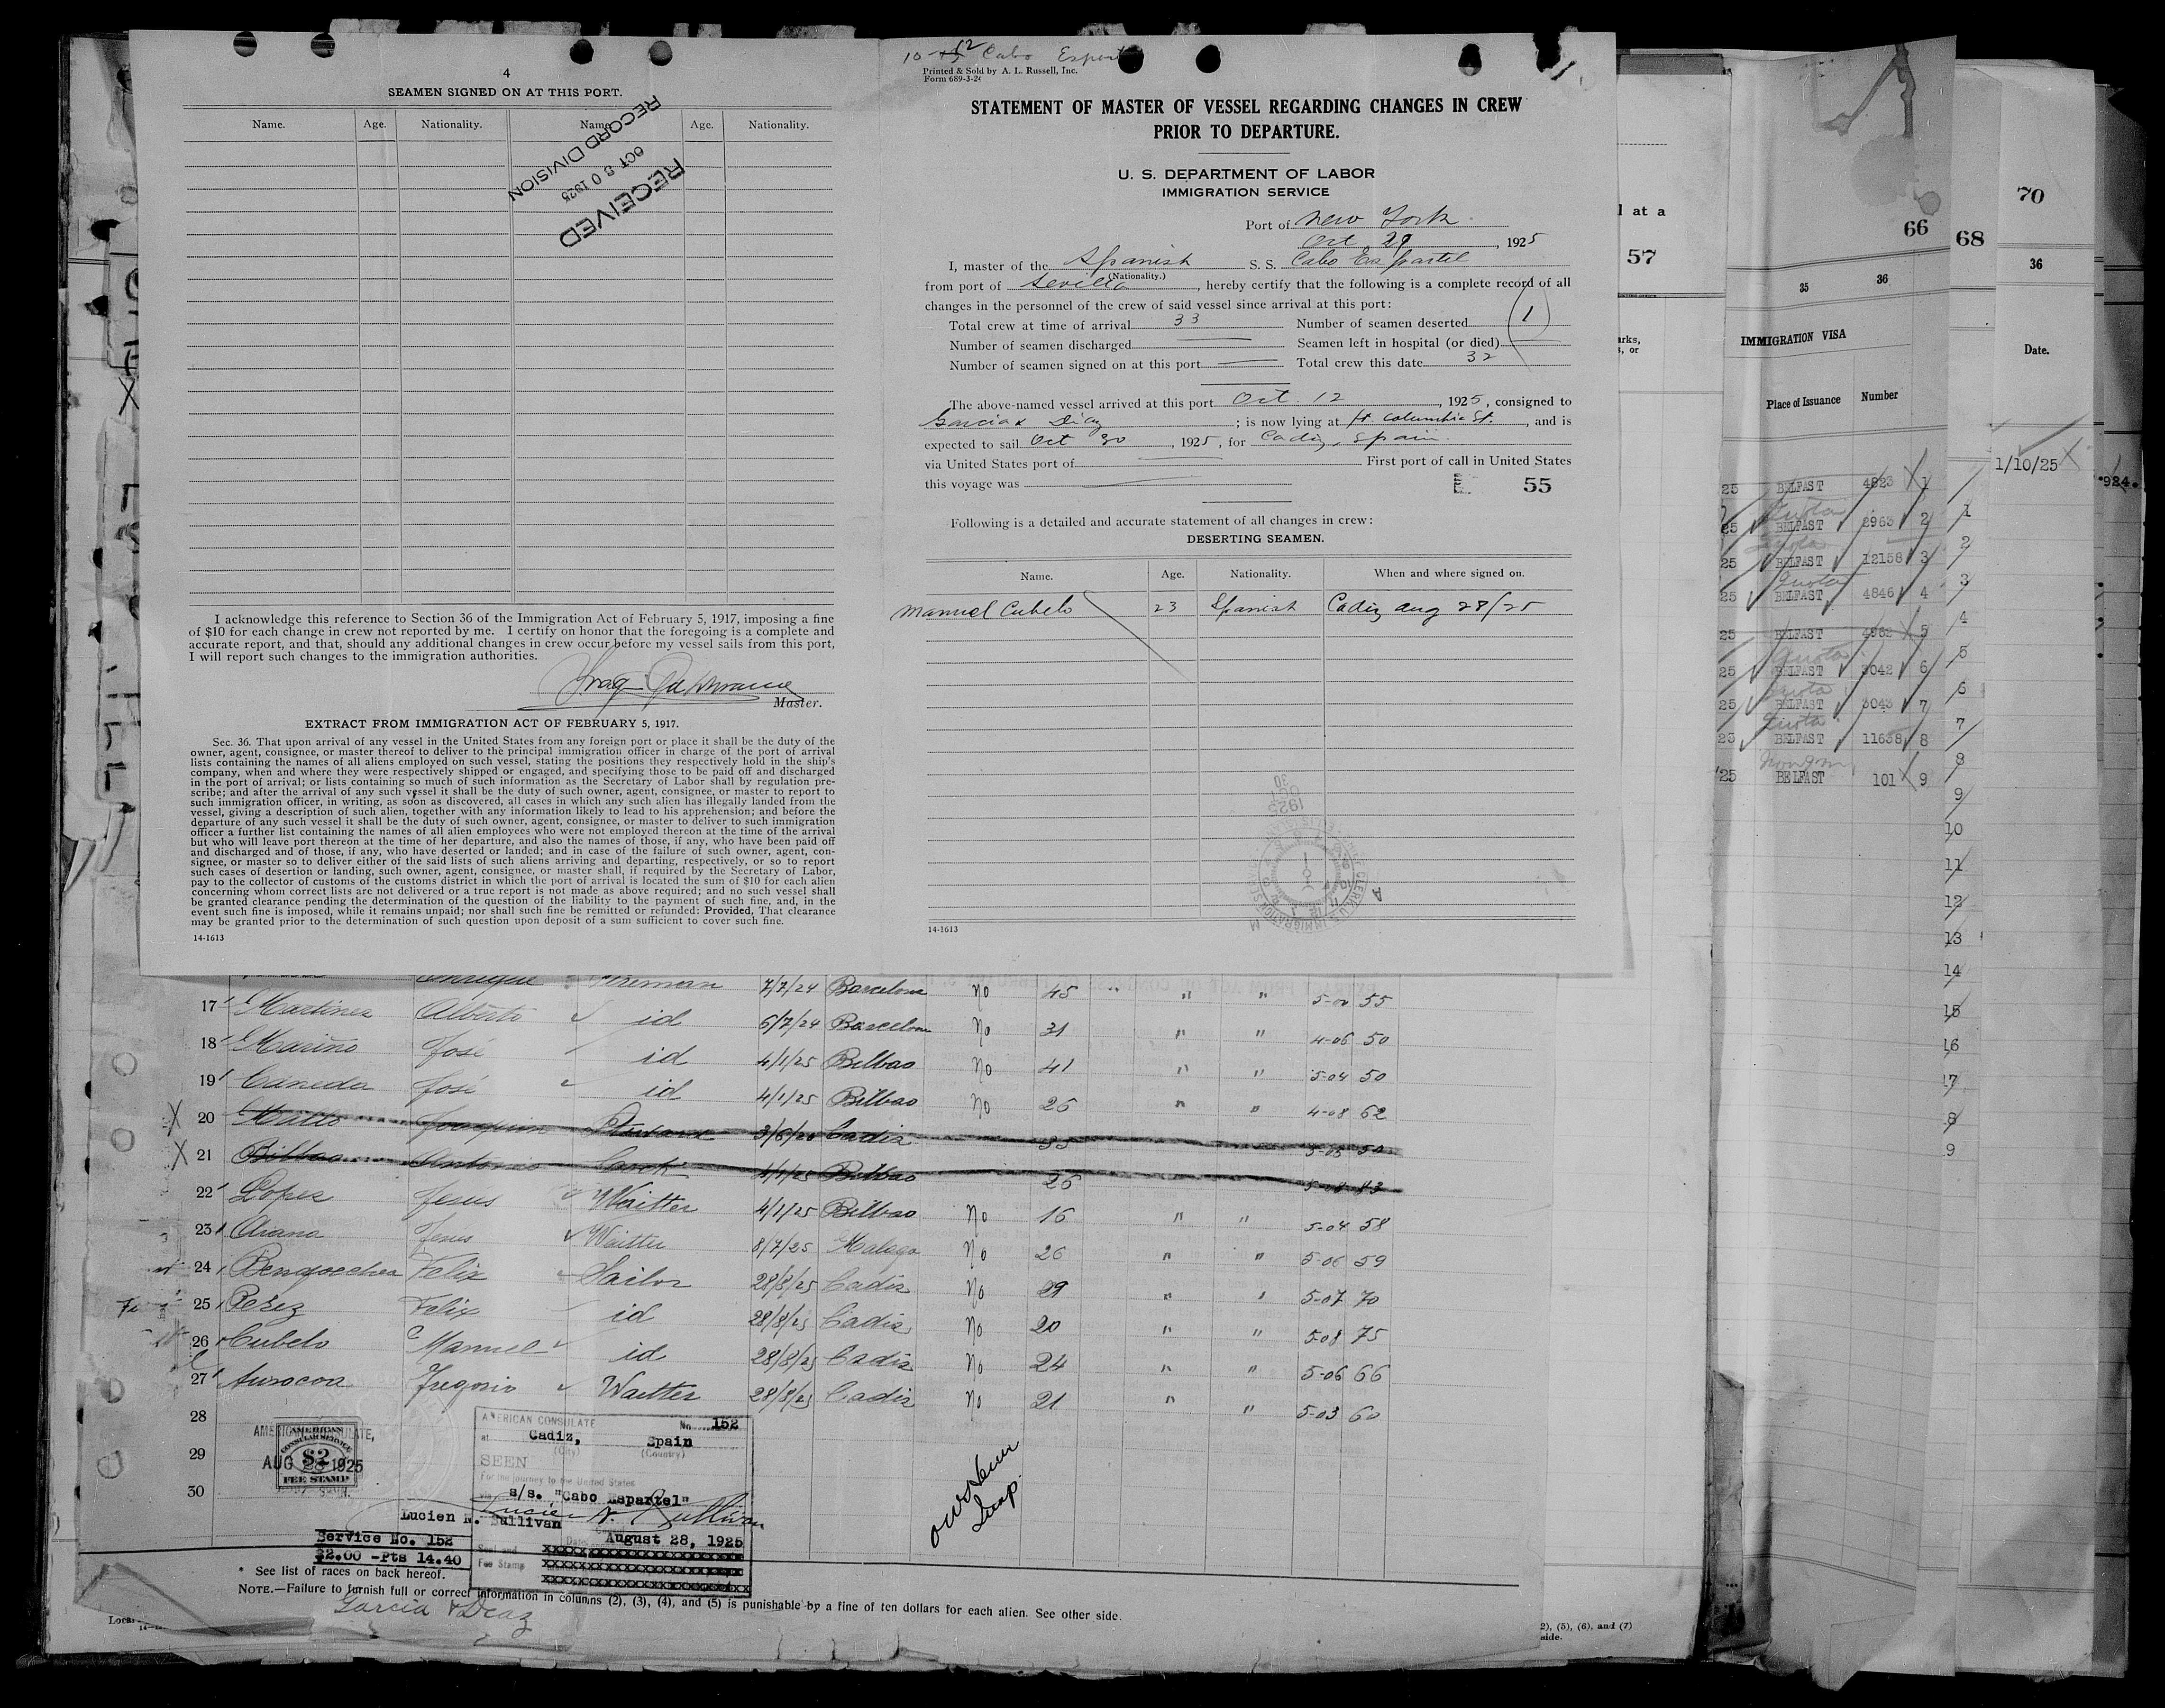 4
SEAMEN SIGNED ON AT THIS PORT.
Name. Age. Nationality. Name. Age. Nationality.
RECEIVED
OCT 30 1925
RECORD DIVISION
I acknowledge this reference to Section 36 of the Immigration Act of February 5, 1917, imposing a fine
of $10 for each change in crew not reported by me. I certify on honor that the foregoing is a complete and
accurate report, and that, should any additional changes in crew occur before my vessel sails from this port,
I will report such changes to the immigration authorities.
Master.
EXTRACT FROM IMMIGRATION ACT OF FEBRUARY 5, 1917.
Sec. 36. That upon arrival of any vessel in the United States from any foreign port or place it shall be the duty of the
owner, agent, consignee, or master thereof to deliver to the principal immigration officer in charge of the port of arrival
lists containing the names of all aliens employed on such vessel, stating the positions they respectively hold in the ship's
company, when and where they were respectively shipped or engaged, and specifying those to be paid off and discharged
in the port of arrival; or lists containing so much of such information as the Secretary of Labor shall by regulation pre-
scribe; and after the arrival of any such vessel it shall be the duty of such owner, agent, consignee, or master to report to
such immigration officer, in writing, as soon as discovered, all cases in which any such alien has illegally landed from the
vessel, giving a description of such alien, together with any information likely to lead to his apprehension; and before the
departure of any such vessel it shall be the duty of such owner, agent, consignee, or master to deliver to such immigration
officer a further list containing the names of all alien employees who were not employed thereon at the time of the arrival
but who will leave port thereon at the time of her departure, and also the names of those, if any, who have been paid off
and discharged and of those, if any, who have deserted or landed; and in case of the failure of such owner, agent, con-
signee, or master so to deliver either of the said lists of such aliens arriving and departing, respectively, or so to report
such cases of desertion or landing, such owner, agent, consignee, or master shall, if required by the Secretary of Labor,
pay to the collector of customs of the customs district in which the port of arrival is located the sum of $10 for each alien
concerning whom correct lists are not delivered or a true report is not made as above required; and no such vessel shall
be granted clearance pending the determination of the question of the liability to the payment of such fine, and, in the
event such fine is imposed, while it remains unpaid; nor shall such fine be remitted or refunded: Provided, That clearance
may be granted prior to the determination of such question upon deposit of a sum sufficient to cover such fine.
14-1613
10 12 Cabo
Printed & Sold by A. L. Russell, Inc.
Form 689-3-2
STATEMENT OF MASTER OF VESSEL REGARDING CHANGES IN CREW
PRIOR TO DEPARTURE.
U. S. DEPARTMENT OF LABOR
IMMIGRATION SERVICE
Port of New York
Oct 29, 1925
I, master of the Spanish S. S. Cabo Espartel
(Nationality.)
from port of Sevilla, hereby certify that the following is a complete record of all
changes in the personnel of the crew of said vessel since arrival at this port:
Total crew at time of arrival 33 Number of seamen deserted 1
Number of seamen discharged Seamen left in hospital (or died)
Number of seamen signed on at this port Total crew this date 32
The above-named vessel arrived at this port Oct 12, 1925, consigned to
Garcia & Diaz; is now lying at ft Columbia St., and is
expected to sail Oct 30, 1925, for Cadiz, Spain
via United States port of First port of call in United States
this voyage was
55
Following is a detailed and accurate statement of all changes in crew:
DESERTING SEAMEN.
Name. Age. Nationality. When and where signed on.
Manuel Cubelo 23 Spanish Cadiz Aug 28/25
OCT 30 1925
14-1613
Enrique Fireman 7/7/24 Barcelona No 45 " " " 5-00 55
17 Martinez Alberto id 6/7/24 Barcelona No 31 " " 4-06 50
18 Mariño José id 4/1/25 Bilbao No 41 " " 5-04 50
19 Caneda José id 4/1/25 Bilbao No 26 " " 4-08 62
20 Joaquin Steward Cadiz 35 5-05 50
21 Bilbao Antonio 4/1/25 Bilbao 26 5-08 83
22 Lopez Jesus Waitter 4/1/25 Bilbao No 16 " " 5-04 58
23 Arana Jesus Waitter 8/7/25 Malaga No 26 " " 5-06 59
24 Bengoechea Felix Sailor 28/8/25 Cadiz No 29 " " 5-07 70
25 Perez Felix id 28/8/25 Cadiz No 20 " " 5-08 75
26 Cubelo Manuel id 28/8/25 Cadiz No 24 " " 5-06 66
27 Waitter 28/8/25 Cadiz No 21 " " 5-03 60
28
29
30
AMERICAN CONSULATE,
AMERICAN
CONSULAR SERVICE
$2
FEE STAMP
AUG 28 1925
AMERICAN CONSULATE No. 152
at Cadiz, Spain
(City) (Country)
SEEN
For the journey to the United States
via s/s. "Cabo Espartel"
Lucien N. Sullivan
Lucien N. Sullivan
Date August 28, 1925
Seal and
Fee Stamp
Service No. 152
$2.00 -Pts 14.40
* See list of races on back hereof.
NOTE.—Failure to furnish full or correct information in columns (2), (3), (4), and (5) is punishable by a fine of ten dollars for each alien. See other side.
Garcia & Diaz
2), (5), (6), and (7)
side.
at a
57
66
35 36
IMMIGRATION VISA
Place of Issuance Number
25 BELFAST 4823 1
25 Quota BELFAST 2963 2
25 Quota BELFAST 12158 3
25 Quota BELFAST 4846 4
25 BELFAST 4962 5
25 Quota BELFAST 3042 6
25 Quota BELFAST 3043 7
25 Quota BELFAST 11658 8
25 BELFAST 101 9
68
1
2
3
4
5
6
7
8
9
10
11
12
13
14
15
16
17
8
9
70
36
Date.
1/10/25
924